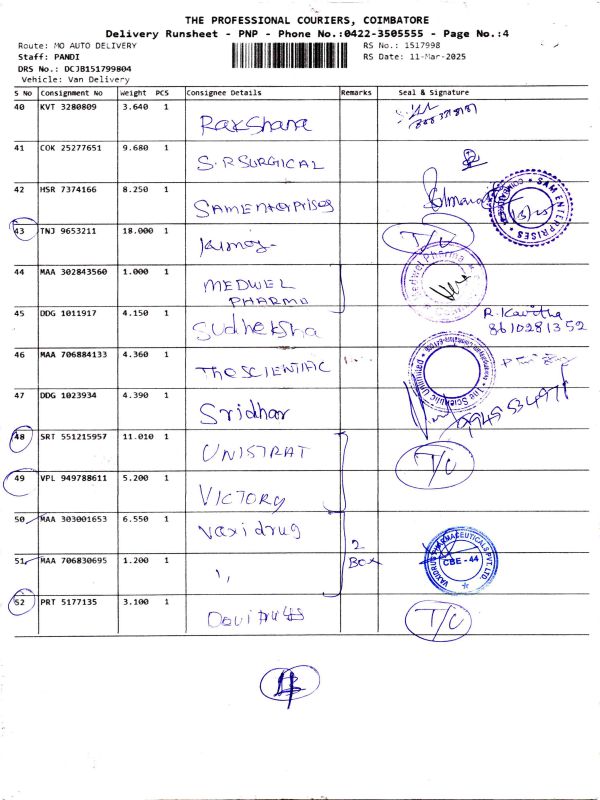 THE PROFESSIONAL COURIERS, COIMBATORE
Delivery Runsheet - PNP - Phone No.:0422-3505555 - Page No.:4
Route: MO AUTO DELIVERY
RS No.: 1517998
Staff: PANDI
RS Date: 11-Mar-2025
DRS No.: DCJB151799804
Vehicle: Van Delivery
S No Consignment No Weight PCS Consignee Details Remarks Seal & Signature
40 KVT 3280809 3.640 1
Rakshana
41 COK 25277651 9.680 1
S.R SURGICAL
42 HSR 7374166 8.250 1
SAM ENterprises
SAM ENTERPRISES
43 TNJ 9653211 18.000 1
T/C
44 MAA 302843560 1.000 1
MEDWEL
PHARMA
Medwel Pharma
45 DDG 1011917 4.150 1
Sudheksha
R. Kavitha
8610281352
46 MAA 706884133 4.360 1
The SCIENTIFIC
47 DDG 1023934 4.390 1
Sridhar
48 SRT 551215957 11.010 1
UNISTRAT
T/C
49 VPL 949788611 5.200 1
VICTORY
50 MAA 303001653 6.550 1
Vaxidrug
2
Box
51 MAA 706830695 1.200 1
"
VAXIDRUG PHARMACEUTICALS PVT. LTD.
CBE - 44
52 PRT 5177135 3.100 1
T/C